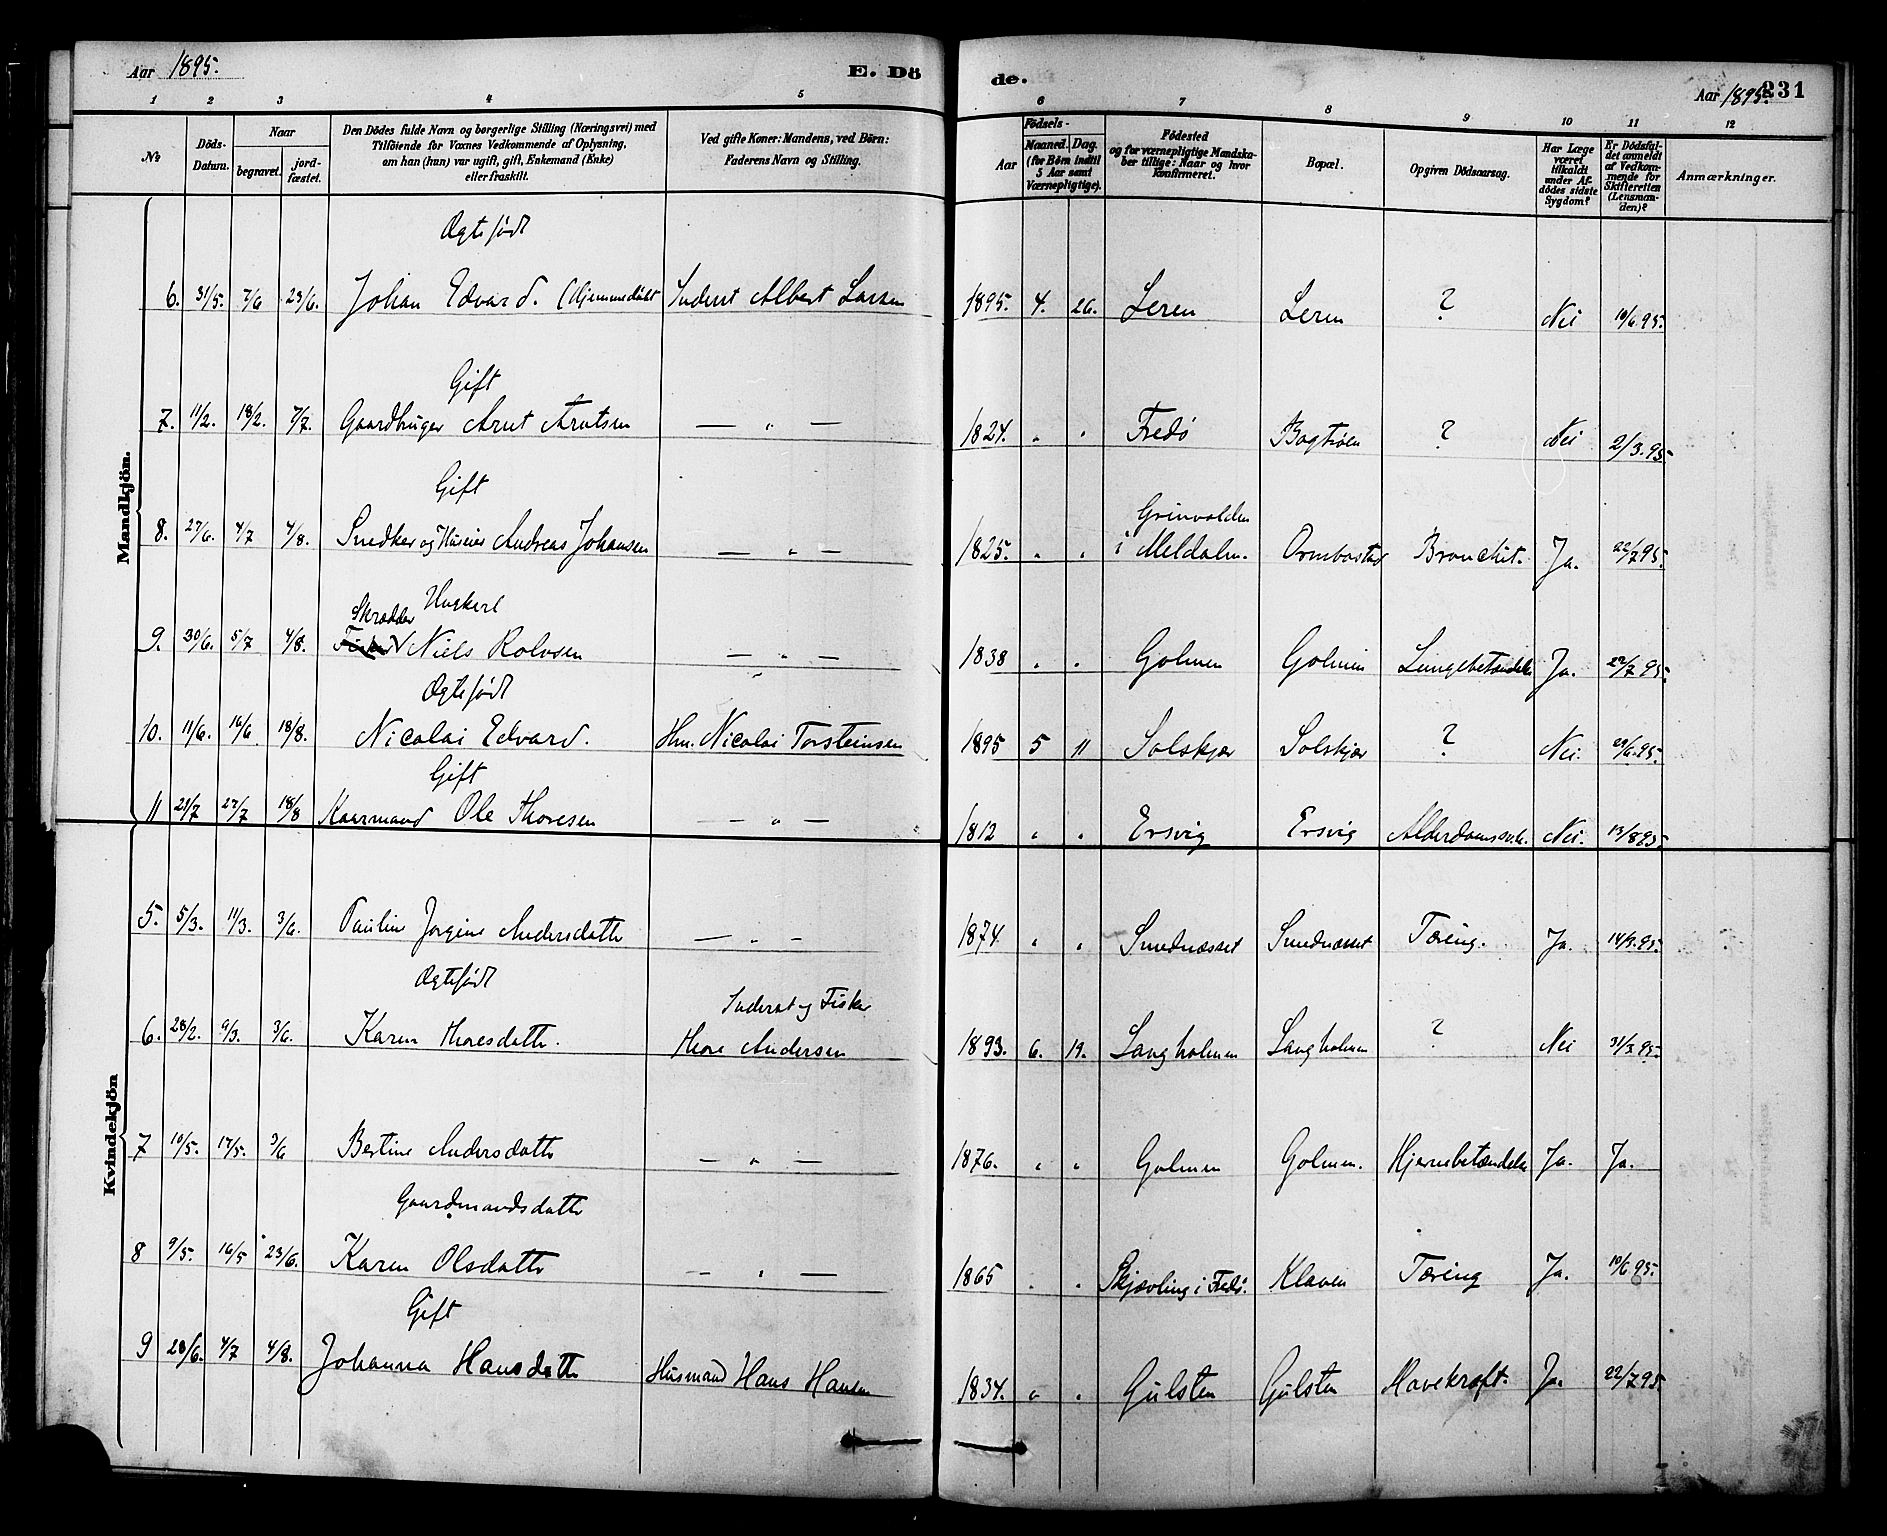 Aar 1895. E. Dö de. Aar 1895. 231
1 2 3 4 5 6 7 8 9 10 11 12
No Döds-Datum. Naar begravet. jord-fæstet. Den Dödes fulde Navn og borgerlige Stilling (Næringsvei) med Tilföiende for Voxnes Vedkommende af Oplysning, om han (hun) var ugift, gift, Enkemand (Enke) eller fraskilt. Ved gifte Koner: Mandens, ved Börn: Faderens Navn og Stilling. Födsels- Aar Maaned. Dag. (for Börn indtil 5 Aar samt Værnepligtige). Födested og for værnepligtige Mandskaber tillige: Naar og hvor konfirmeret. Bopæl. Opgiven Dödsaarsag. Har Læge været tilkaldt under Afdödes sidste Sygdom? Er Dödsfaldet anmeldt af Vedkommende for Skifteretten (Lensmanden)? Anmærkninger.
Mandkjön.
Ægtefødt
6. 31/5. 7/6 23/6. Johan Edvard. (Hjemmedøbt Inderst Albert Larsen 1895. 4. 26. Leren Leren ? Nei 10/6.95.
Gift
7. 11/2. 18/2. 7/7. Gaardbruger Arnt Arntsen — " — 1824. " " Fredö Bogtrøen ? Nei 2/3.95
Gift
Grinvolden
8. 27/6. 4/7 4/8. Snedker og Huseier Andreas Johansen — " — 1825. " " i Meldalen. Ormbostad Bronchit. Ja. 22/7 95.
Ungkerl
Skrædder
9. 30/6. 5/7 4/8. Niels Rolvsen — " — 1838 " " Golmen Golmen Lungebetændelse Ja. 22/7 95.
Ægtefødt
10. 11/6. 16/6. 18/8. Nicolai Edvard. Hm. Nicolai Torsteinsen 1895 5 11 Solskjær Solskjær ? Nei. 29/6.95.
Gift
11 21/7 27/7 18/8 Kaarmand Ole Thoresen — " — 1812 " " Ersvig Ersvig Alderdomssvk. Nei. 13/8 95.
Kvindekjön
5. 5/3. 11/3. 3/6. Pauline Jorgine Andersdatter — " — 1874. " " Smednæsset Smednæsset Tæring. Ja. 14/3.95.
Ægtefødt
Inderst og Fisker
6. 28/2. 9/3. 3/6. Karen Thoresdatter. Thore Andersen 1893. 6. 19. Langholmen Langholmen ? Nei 31/3.95.
7 10/5. 17/5. 3/6 Bertine Andersdatter — " — 1876. " " Golmen Golmen. Hjernebetændelse Ja. Ja.
Gaardmandsdatter
8 9/5. 16/5 23/6. Karen Olsdatter — " — 1865 " " Skjævling i Fredö. Klaven Tæring Ja. 10/6 95.
Gift
9 28/6. 4/7 4/8. Johanna Hansdatter Husmand Hans Hansen 1834. " " Gulsten Gulsten Mavekræft. Ja. 22/7 95.